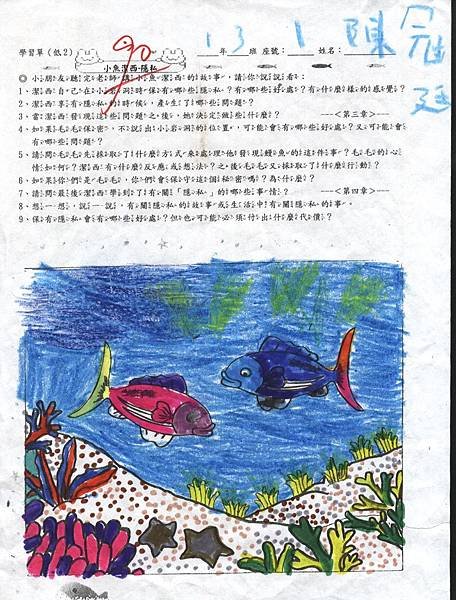 學習單（低2） 90 __年 13 班 座號：1 姓名：陳冠廷
小魚潔西-隱私
◎小朋友聽完老師講小魚潔西的故事，請你說說看：
1、潔西自己在小岩洞時保有哪些隱私？有哪些好處？有什麼樣的感覺？
2、潔西享有隱私的時候，產生了哪些問題？
3、當潔西發現這些問題之後，她決定做些什麼？ ---<第三章>---
4、如果毛毛保密，不說出小岩洞的位置，可能會有哪些好處？又可能會有哪些問題？
5、請問毛毛先採取了什麼方式來處理他發現鰻魚的這件事？毛毛的心情如何？潔西有什麼反應或想法？之後毛毛又採取了什麼行動？
6、如果你們是毛毛，你們會保守這個秘密嗎？為什麼？
7、請問最後潔西學到了有關「隱私」的哪些事情？ ---<第四章>---
8、想一想，說一說，有關隱私的故事或生活中有關隱私的事。
9、保有隱私會有哪些好處？但也可能必須付出什麼代價？